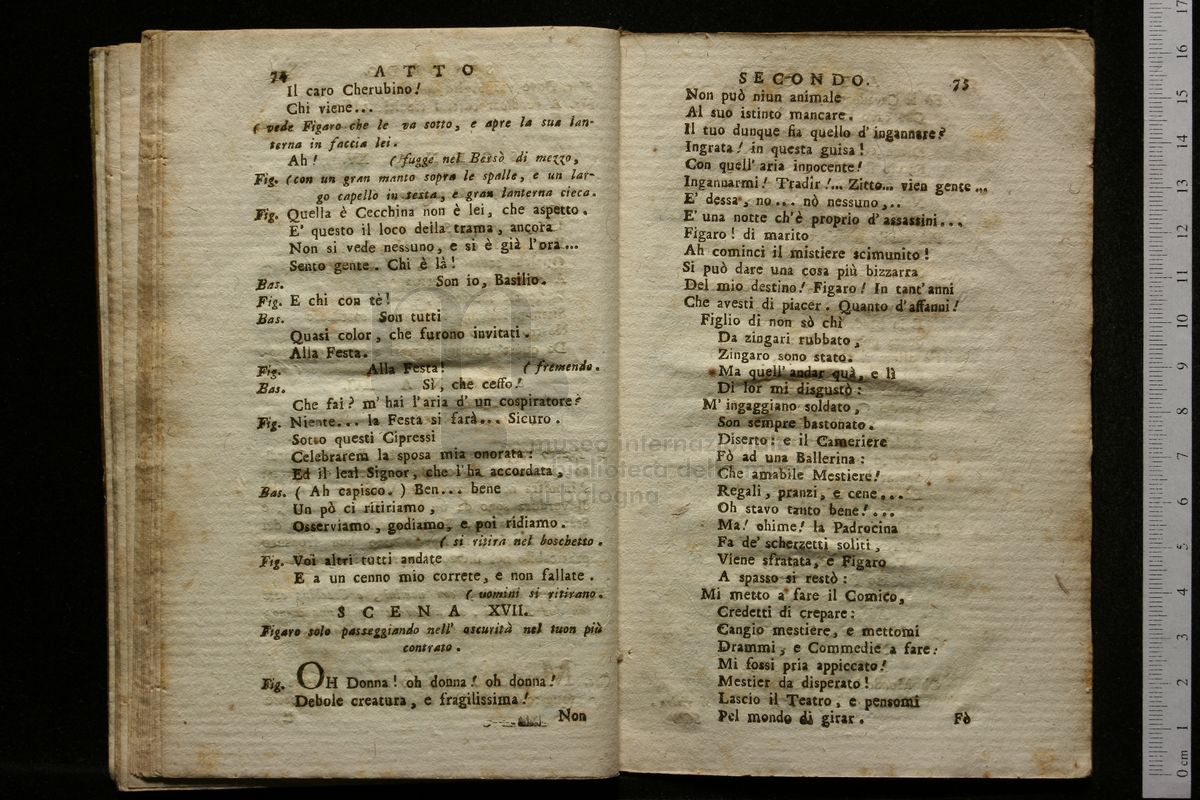 74 A T T O
Il caro Cherubino!
Chi viene...
( vede Figaro che le va sotto, e apre la sua lan-
terna in faccia lei.
Ah! ( fugge nel Bersò di mezzo,
Fig. (con un gran manto sopra le spalle, e un lar-
go capello in testa, e gran lanterna cieca.
Fig. Quella è Cecchina non è lei, che aspetto.
E' questo il loco della trama, ancora
Non si vede nessuno, e si è già l'ora...
Sento gente. Chi è là!
Bas. Son io, Basilio.
Fig. E chi con tè!
Bas. Son tutti
Quasi color, che furono invitati.
Alla Festa.
Fig. Alla Festa! ( fremendo.
Bas. Sì, che ceffo!
Che fai? m' hai l'aria d' un cospiratore?
Fig. Niente... la Festa si farà... Sicuro.
Sotto questi Cipressi
Celebrarem la sposa mia onorata:
Ed il leal Signor, che l'ha accordata,
Bas. ( Ah capisco. ) Ben... bene
Un pò ci ritiriamo,
Osserviamo, godiamo, e poi ridiamo.
( si ritira nel boschetto.
Fig. Voi altri tutti andate
E a un cenno mio correte, e non fallate.
( uomini si ritirano.
S C E N A XVII.
Figaro solo passeggiando nell' oscurità nel tuon più
contrato.
Fig. OH Donna! oh donna! oh donna!
Debole creatura, e fragilissima!
Non
SECONDO. 75
Non può niun animale
Al suo istinto mancare.
Il tuo dunque fia quello d' ingannare?
Ingrata! in questa guisa!
Con quell' aria innocente!
Ingannarmi! Tradir!... Zitto... vien gente...
E' dessa, no... nò nessuno,..
E' una notte ch'è proprio d' assassini...
Figaro! di marito
Ah cominci il mistiere scimunito!
Si può dare una cosa più bizzarra
Del mio destino! Figaro! In tant' anni
Che avesti di piacer. Quanto d'affanni!
Figlio di non sò chì
Da zingari rubbato,
Zingaro sono stato.
Ma quell' andar quà, e lì
Di lor mi disgustò:
M' ingaggiano soldato,
Son sempre bastonato.
Diserto: e il Cameriere
Fò ad una Ballerina:
Che amabile Mestiere!
Regali, pranzi, e cene...
Oh stavo tanto bene!...
Ma! ohime! la Padrocina
Fa de' scherzetti soliti,
Viene sfratata, e Figaro
A spasso si restò:
Mi metto a fare il Comico,
Credetti di crepare:
Cangio mestiere, e mettomi
Drammi, e Commedie a fare:
Mi fossi pria appiccato!
Mestier da disperato!
Lascio il Teatro, e pensomi
Pel mondo di girar. Fò
museo internazi
biblioteca del
di bologna
0 cm 1 2 3 4 5 6 7 8 9 10 11 12 13 14 15 16 17